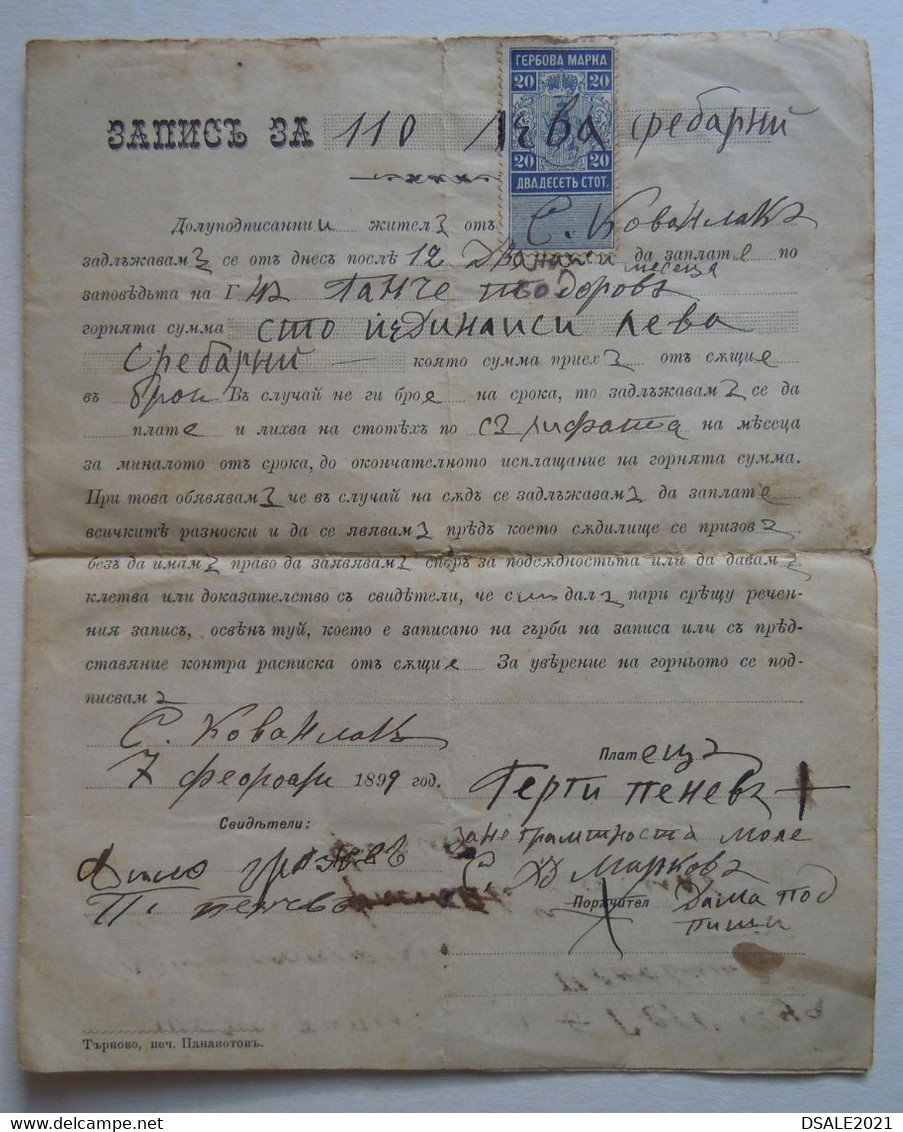 ГЕРБОВА МАРКА
20 20
20 20
ДВАДЕСЕТЬ СТОТ.
ЗАПИСЪ ЗА 110 Лева сребарни
Долуподписанний жителъ отъ С. Кованлакъ
задлъжавамъ се отъ днесъ послѣ 12 да заплате по
месеца
заповѣдьта на Г нъ Панче тодоровъ
горнята сумма сто лева
Сребарни която сумма приехъ отъ сѫщие
въ брои Въ случай не ги брое на срока, то задлъжавамъ се да
плате и лихва на стотѣхъ по съ лифата на мѣсеца
за миналото отъ срока, до окончателното исплащание на горнята сумма.
При това обявявамъ че въ случай на сѫдъ се задлъжавамъ да заплате
всичкитѣ разноски и да се явявамъ прѣдъ което сѫдилище се призовъ
безъ да имамъ право да заявявамъ споръ за подсѫдностьта или да давамъ
клетва или доказателство съ свидѣтели, че съм далъ пари срѣщу речен-
ния записъ, освѣнъ туй, което е записано на гърба на записа или съ прѣд-
ставяние контра расписка отъ сѫщие За увѣрение на горньото се под-
писвамъ
С. Кованлакъ
7 феороари 1899 год.
Платецъ
Герги пеневъ +
Свидѣтели:
за не грамтноста моле
С Д Марковъ
П. пенчевъ
Порѫчител Дама под
пиши
Търново, печ. Панайотовъ.
DSALE2021